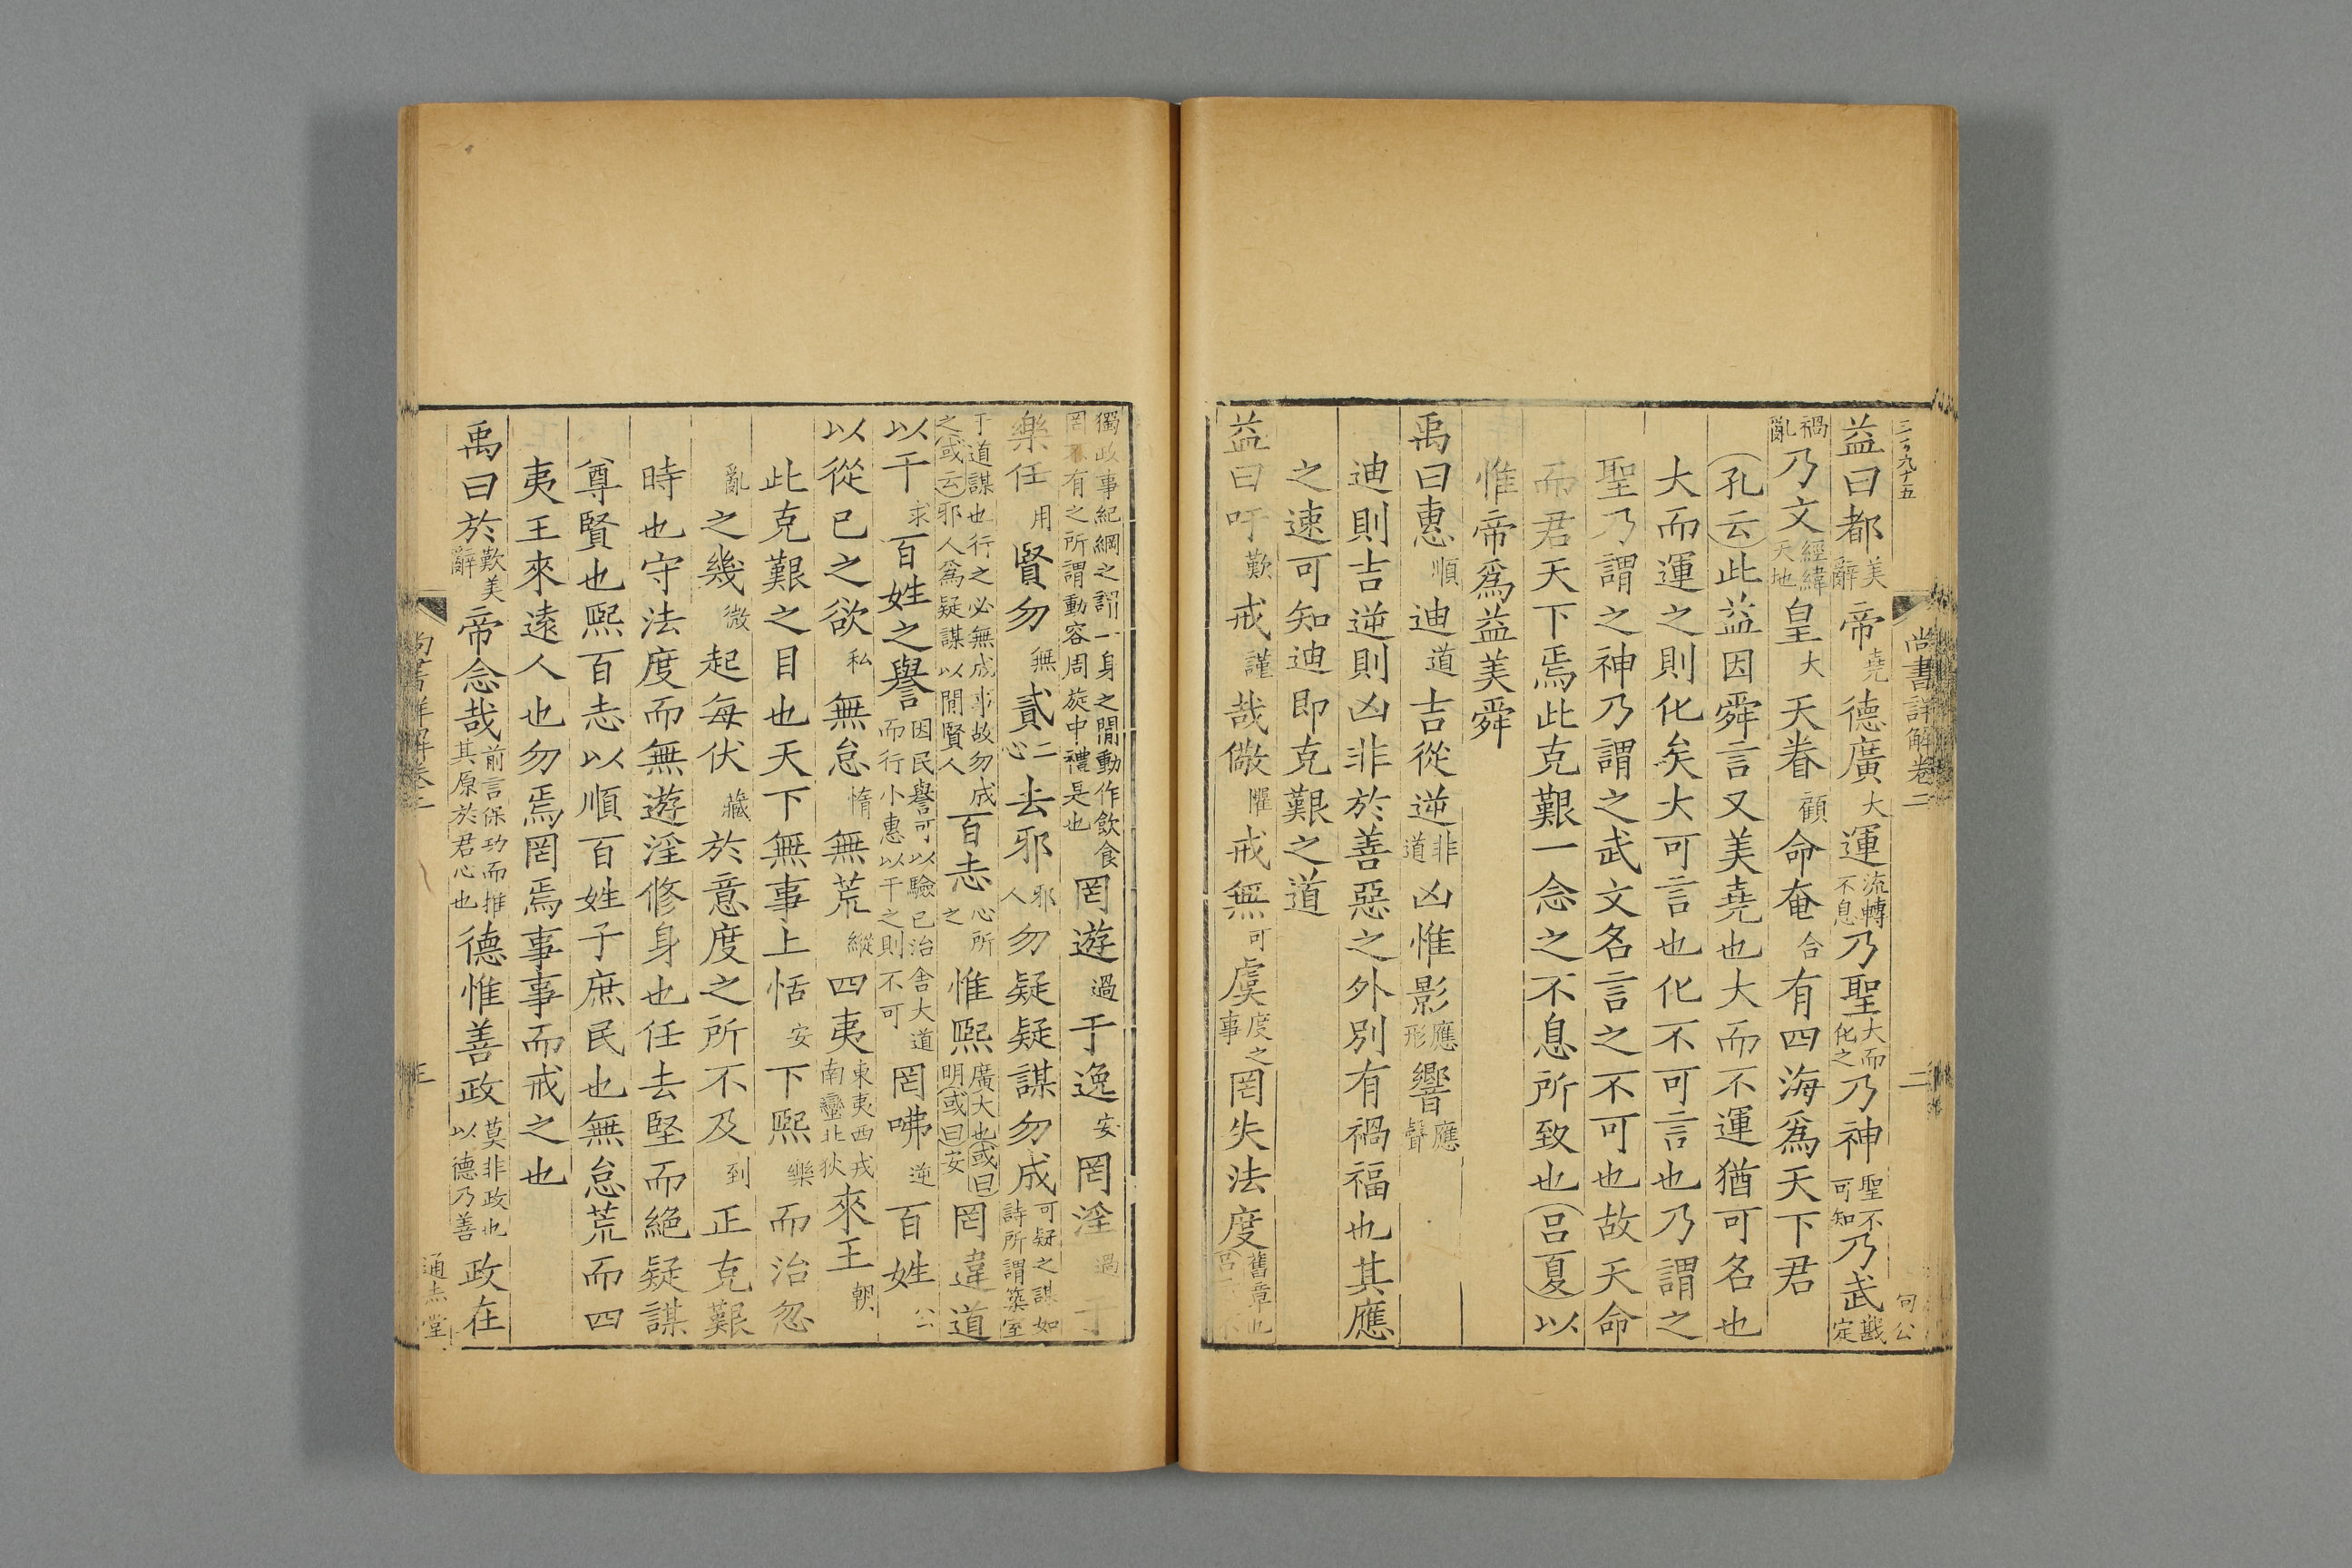 益曰都美辭帝堯德廣大運流轉不息乃聖大而化之乃神聖不可知乃武戡定
禍亂乃文經緯天地皇大天眷顧命奄合有四海爲天下君
孔云此益因舜言又美堯也大而不運猶可名也
大而運之則化矣大可言也化不可言也乃謂之
聖乃謂之神乃謂之武文名言之不可也故天命
而君天下焉此克艱一念之不息所致也呂夏以
惟帝爲益美舜
禹曰惠順迪道吉從逆非道凶惟影應形響應聲
迪則吉逆則凶非於善惡之外別有禍福也其應
之速可知迪即克艱之道
益曰吁歎戒謹哉儆懼戒無可虞度之事罔失法度舊章也
尚書詳解卷二
二
獨政事紀綱之謂一身之間動作飲食罔不有之所謂動容周旋中禮是也罔遊過于逸安罔淫過于
樂任用賢勿無貳二心去邪邪人勿疑疑謀勿成可疑之謀如詩所謂築室
于道謀也行之必無成事故勿成之或云邪人爲疑謀以間賢人百志心所之惟熙廣大也或曰明或曰安罔違道
以干求百姓之譽因民譽可以驗已治而行小惠以干之則不可舍大道罔咈逆百姓公
以從已之欲私無怠惰無荒縱四夷東夷西戎南蠻北狄來王朝
此克艱之目也天下無事上恬安下熙樂而治忽
亂之幾微起每伏藏於意度之所不及到正克艱
時也守法度而無遊淫修身也任去堅而絕疑謀
尊賢也熙百志以順百姓子庶民也無怠荒而四
夷王來遠人也勿焉罔焉事事而戒之也
禹曰於歎美辭帝念哉前言保功而推其原於君心也德惟善政莫非政也以德乃善政在
尚書詳解卷二
三
通志堂